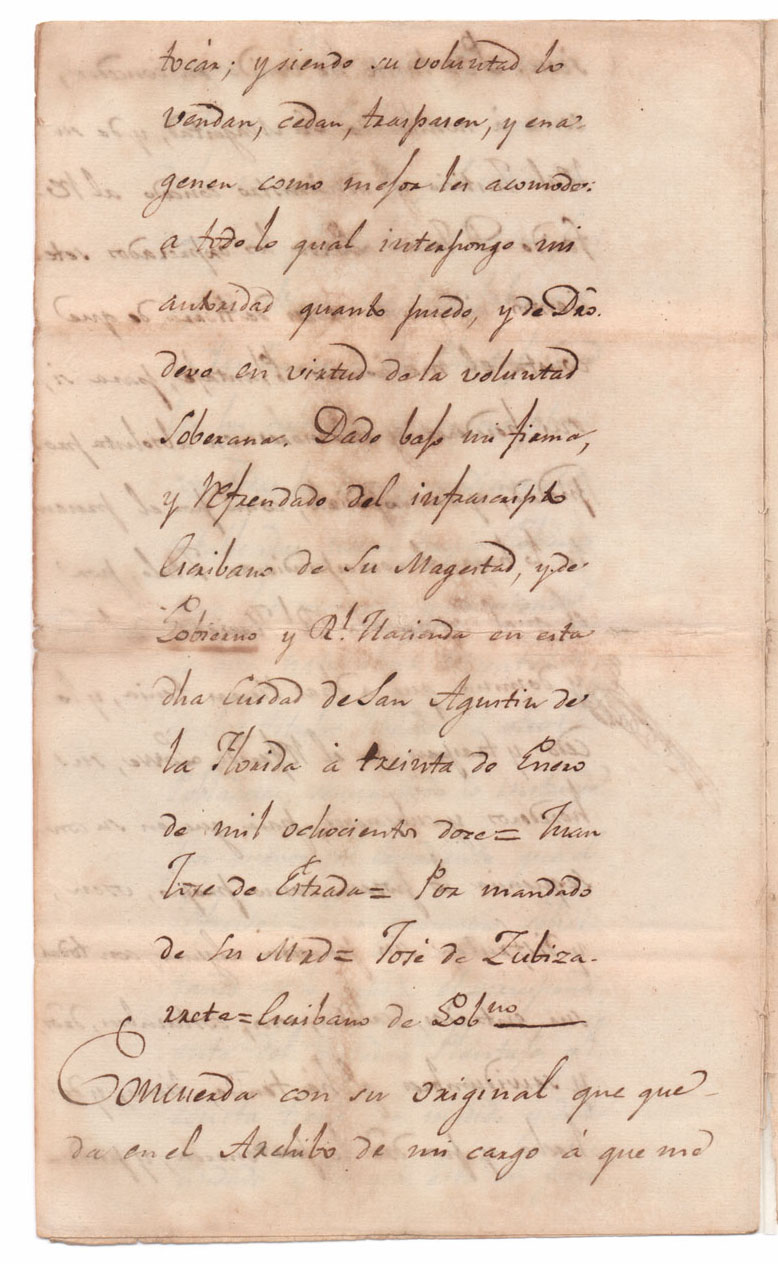 tocár; y siendo su voluntad lo
vendan, cedan, trasparen, y ena-
genen como mejor les acomode:
a todo lo qual interpongo mi
autoridad quanto puedo, y de Dro.
devo en virtud de la voluntad
Soberana. Dado bajo mi firma,
y Refrendado del infrascripto
Escribano de Su Magestad, y de
Gobierno y Rl. Hacienda en esta
dha Ciudad de San Agustin de
la Florida à treinta de Enero
de mil ochocientos doce = Juan
José de Estrada = Por mandado
de Su Mrd = José de Zubiza-
rreta = Escribano de Gobno
Concuerda con su original que que-
da en el Archibo de mi cargo á que me